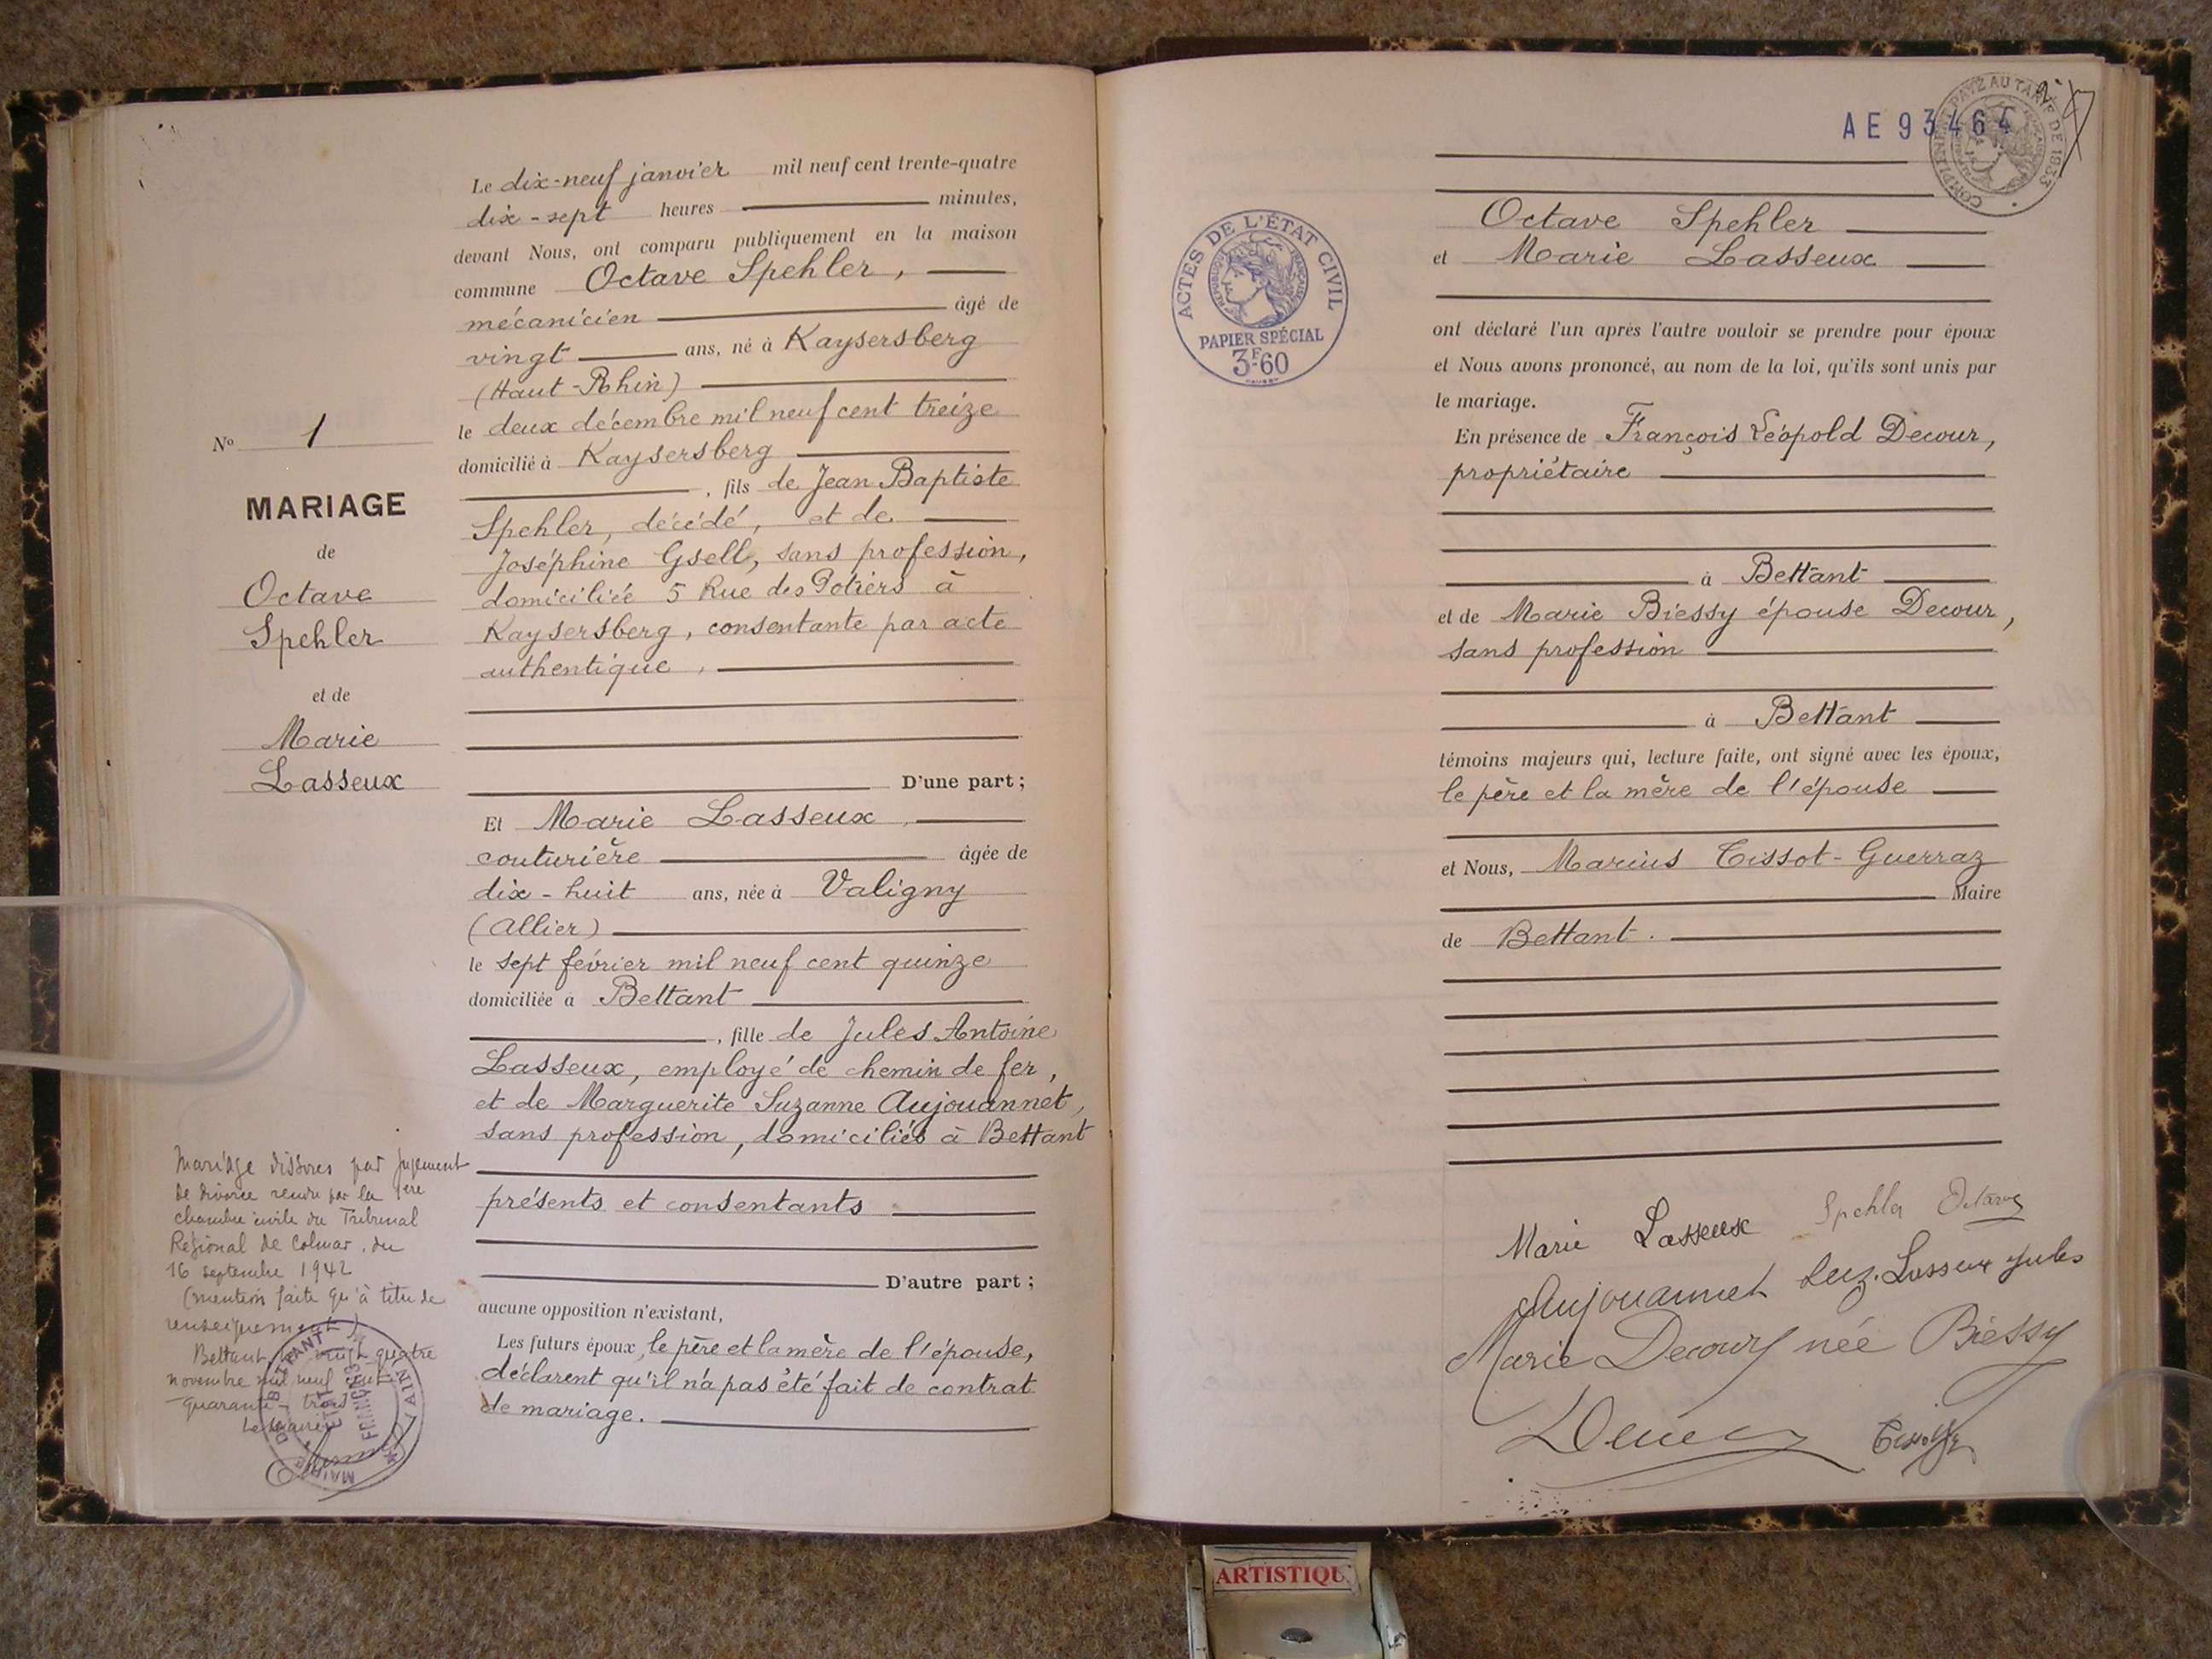 Le dix-neuf janvier mil neuf cent trente-quatre
dix-sept heures minutes,
devant Nous, ont comparu publiquement en la maison
commune Octave Spehler,
mécanicien âgé de
vingt ans, né à Kaysersberg
(Haut-Rhin)
le deux décembre mil neuf cent treize
domicilié à Kaysersberg
, fils de Jean Baptiste
Spehler, décédé, et de
Joséphine Gsell, sans profession,
domiciliée 5 Rue des Potiers à
Kaysersberg, consentante par acte
authentique,
D'une part ;
Et Marie Lasseux,
couturière âgée de
dix-huit ans, née à Valigny
(Allier)
le sept février mil neuf cent quinze
domiciliée à Bettant
, fille de Jules Antoine
Lasseux, employé de chemin de fer,
et de Marguerite Suzanne Aujouannet,
sans profession, domiciliés à Bettant
présents et consentants
D'autre part ;
aucune opposition n'existant,
Les futurs époux, le père et la mère de l'épouse,
déclarent qu'il n'a pas été fait de contrat
de mariage.
No 1
MARIAGE
de
Octave
Spehler
et de
Marie
Lasseux
Mariage dissous par jugement
de divorce rendu par la 1ère
chambre civile du Tribunal
Régional de Colmar, du
16 septembre 1942
(mention faite qu'à titre de
renseignement)
Bettant, le vingt quatre
novembre mil neuf cent
quarante-trois
Le Maire
MAIRIE DE BETTANT
(AIN)
ETAT FRANÇAIS
AE 93464
COMPLÉMENT PAYÉ AU TARIF DE 1933
2
ACTES DE L'ÉTAT CIVIL
RÉPUBLIQUE FRANÇAISE
PAPIER SPÉCIAL
3F60
Octave Spehler
et Marie Lasseux
ont déclaré l'un après l'autre vouloir se prendre pour époux
et Nous avons prononcé, au nom de la loi, qu'ils sont unis par
le mariage.
En présence de François Léopold Decour,
propriétaire
à Bettant
et de Marie Biessy épouse Decour,
sans profession
à Bettant
témoins majeurs qui, lecture faite, ont signé avec les époux,
le père et la mère de l'épouse
et Nous, Marius Tissot-Guerraz
Maire
de Bettant.
Marie Lasseux Spehler Octave
Aujouannet Suz. Lasseux Jules
Marie Decour née Biessy
Decour
ARTISTIQU